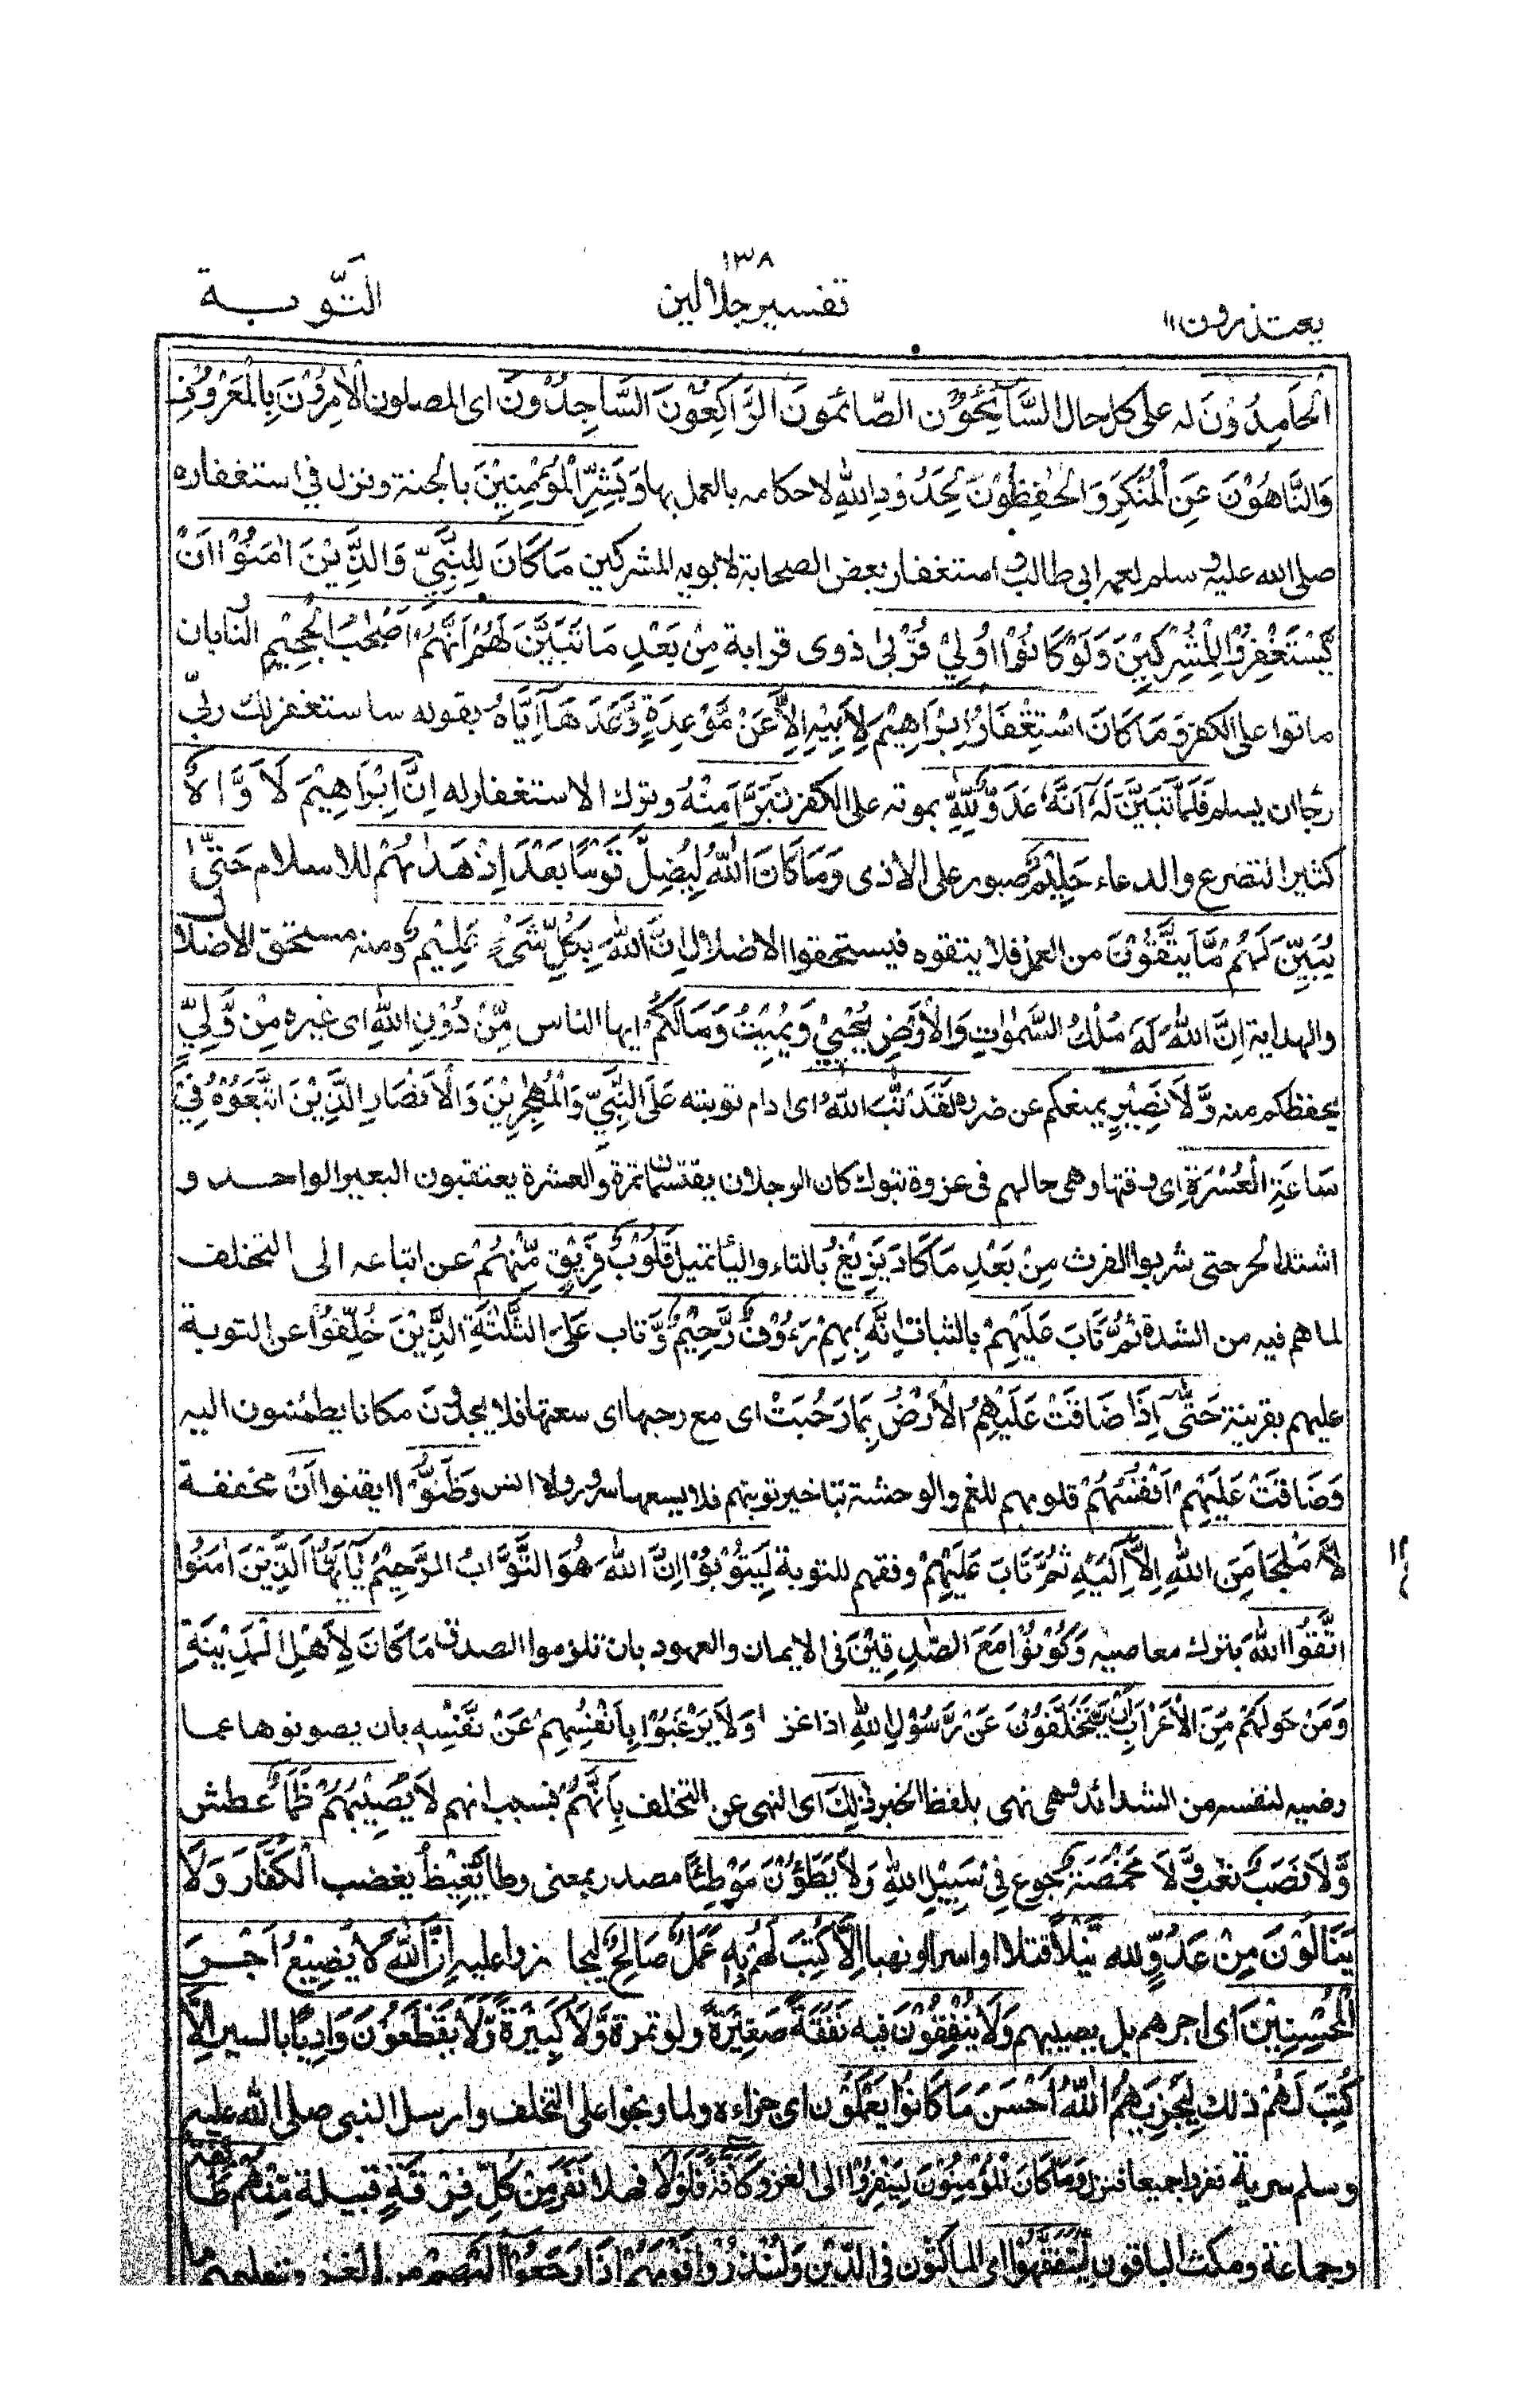 ١٣٨
يعتذرون ١١
تفسير جلالين
التَّوبة
الْحَامِدُوْنَ له على كل حال السَّآئِحُوْنَ الصائمون الرَّاكِعُوْنَ السَّاجِدُوْنَ اى المصلون الْاٰمِرُوْنَ بِالْمَعْرُوْفِ
وَالنَّاهُوْنَ عَنِ الْمُنْكَرِ وَالْحٰفِظُوْنَ لِحُدُوْدِ اللّٰهِ لاحكامه بالعمل بها وَبَشِّرِ الْمُؤْمِنِيْنَ بالجنة ونزل في استغفاره
صلى الله عليه و سلم لعمه ابى طالب و استغفار بعض الصحابة لابويه المشركين مَا كَانَ لِلنَّبِيِّ وَالَّذِيْنَ اٰمَنُوْا اَنْ
يَّسْتَغْفِرُوْا لِلْمُشْرِكِيْنَ وَلَوْ كَانُوْا اُولِيْ قُرْبٰى ذوى قرابة مِنْ بَعْدِ مَا تَبَيَّنَ لَهُمْ اَنَّهُمْ اَصْحٰبُ الْجَحِيْمِ النار بان
ماتوا على الكفر وَمَا كَانَ اسْتِغْفَارُ اِبْرَاهِيْمَ لِاَبِيْهِ اِلَّا عَنْ مَّوْعِدَةٍ وَّعَدَهَآ اِيَّاهُ بقوله ساستغفر لك ربّى
رجاان يسلم فَلَمَّا تَبَيَّنَ لَهٗ اَنَّهٗ عَدُوٌّ لِّلّٰهِ بموته على الكفر تَبَرَّاَ مِنْهُ وترك الاستغفار له اِنَّ اِبْرَاهِيْمَ لَاَوَّاهٌ
كثير التضرع والدعاء حَلِيْمٌ صبور على الاذى وَمَا كَانَ اللّٰهُ لِيُضِلَّ قَوْمًا بَعْدَ اِذْ هَدٰىهُمْ للاسلام حَتّٰى
يُبَيِّنَ لَهُمْ مَّا يَتَّقُوْنَ من العمل فلا يتقوه فيستحقوا الاضلال اِنَّ اللّٰهَ بِكُلِّ شَيْءٍ عَلِيْمٌ ومنه مستحق الاضلال
والهداية اِنَّ اللّٰهَ لَهٗ مُلْكُ السَّمٰوٰتِ وَالْاَرْضِ يُحْيِيْ وَيُمِيْتُ وَمَا لَكُمْ ايها الناس مِّنْ دُوْنِ اللّٰهِ اى غيره مِنْ وَّلِيٍّ
يحفظكم منه وَّلَا نَصِيْرٍ يمنعكم عن ضرره لَقَدْ تَّابَ اللّٰهُ اى ادام توبته عَلَى النَّبِيِّ وَالْمُهٰجِرِيْنَ وَالْاَنْصَارِ الَّذِيْنَ اتَّبَعُوْهُ فِيْ
سَاعَةِ الْعُسْرَةِ اى وقتها وهى حالهم فى غزوة تبوك كان الرجلان يقتسمان تمرة والعشرة يعتقبون البعير الواحد و
اشتد الحر حتى شربوا الفرث مِنْ بَعْدِ مَا كَادَ يَزِيْغُ بالتاء والياء تميل قُلُوْبُ فَرِيْقٍ مِّنْهُمْ عن اتباعه الى التخلف
لما هم فيه من الشدة ثُمَّ تَابَ عَلَيْهِمْ بالثبات اِنَّهٗ بِهِمْ رَءُوْفٌ رَّحِيْمٌ وَّ تاب عَلَى الثَّلٰثَةِ الَّذِيْنَ خُلِّفُوْا عن التوبة
عليهم بقرينة حَتّٰٓى اِذَا ضَاقَتْ عَلَيْهِمُ الْاَرْضُ بِمَا رَحُبَتْ اى مع رحبها اى سعتها فلا يجدون مكانا يطمئنون اليه
وَضَاقَتْ عَلَيْهِمْ اَنْفُسُهُمْ قلوبهم للغم والوحشة بتاخير توبتهم فلا يسعها سرور ولا انس وَظَنُّوْا ايقنوا اَنْ مخففة
لَّا مَلْجَاَ مِنَ اللّٰهِ اِلَّا اِلَيْهِ ثُمَّ تَابَ عَلَيْهِمْ وفقهم للتوبة لِيَتُوْبُوْا اِنَّ اللّٰهَ هُوَ التَّوَّابُ الرَّحِيْمُ يٰٓاَيُّهَا الَّذِيْنَ اٰمَنُوا
اتَّقُوا اللّٰهَ بترك معاصيه وَكُوْنُوْا مَعَ الصّٰدِقِيْنَ فى الايمان والعهود بان تلزموا الصدق مَا كَانَ لِاَهْلِ الْمَدِيْنَةِ
وَمَنْ حَوْلَهُمْ مِّنَ الْاَعْرَابِ اَنْ يَّتَخَلَّفُوْنَ عَنْ رَّسُوْلِ اللّٰهِ اذا غزا وَلَا يَرْغَبُوْا بِاَنْفُسِهِمْ عَنْ نَّفْسِهٖ بان يصونوها عما
رضيه لنفسه من الشدائد وهى نهى بلفظ الخبر ذٰلِكَ اى النهى عن التخلف بِاَنَّهُمْ بسبب انهم لَا يُصِيْبُهُمْ ظَمَاٌ عطش
وَّلَا نَصَبٌ تعب وَّلَا مَخْمَصَةٌ جوع فِيْ سَبِيْلِ اللّٰهِ وَلَا يَطَؤُنَ مَوْطِئًا مصدر بمعنى وطا يَّغِيْظُ يغضب الْكُفَّارَ وَلَا
يَنَالُوْنَ مِنْ عَدُوٍّ لله نَّيْلًا قتلا او اسرا او نهبا اِلَّا كُتِبَ لَهُمْ بِهٖ عَمَلٌ صَالِحٌ ليجازوا عليه اِنَّ اللّٰهَ لَا يُضِيْعُ اَجْرَ
الْمُحْسِنِيْنَ اى اجرهم بل يصيبهم وَلَا يُنْفِقُوْنَ فيه نَفَقَةً صَغِيْرَةً ولو تمرة وَّلَا كَبِيْرَةً وَّلَا يَقْطَعُوْنَ وَادِيًا بالسير اِلَّا
كُتِبَ لَهُمْ ذلك لِيَجْزِيَهُمُ اللّٰهُ اَحْسَنَ مَا كَانُوْا يَعْمَلُوْنَ اى جزاءه ولما وبخوا على التخلف وارسل النبى صلى الله عليه
وسلم سرية نفروا جميعا فنزل وَمَا كَانَ الْمُؤْمِنُوْنَ لِيَنْفِرُوْا الى الغزو كَآفَّةً فَلَوْلَا فهلا نَفَرَ مِنْ كُلِّ فِرْقَةٍ قبيلة مِّنْهُمْ طَآئِفَةٌ
وجماعة ومكث الباقون لِّيَتَفَقَّهُوْا اى الماكثون فِى الدِّيْنِ وَلِيُنْذِرُوْا قَوْمَهُمْ اِذَا رَجَعُوْا اِلَيْهِمْ من الغزو